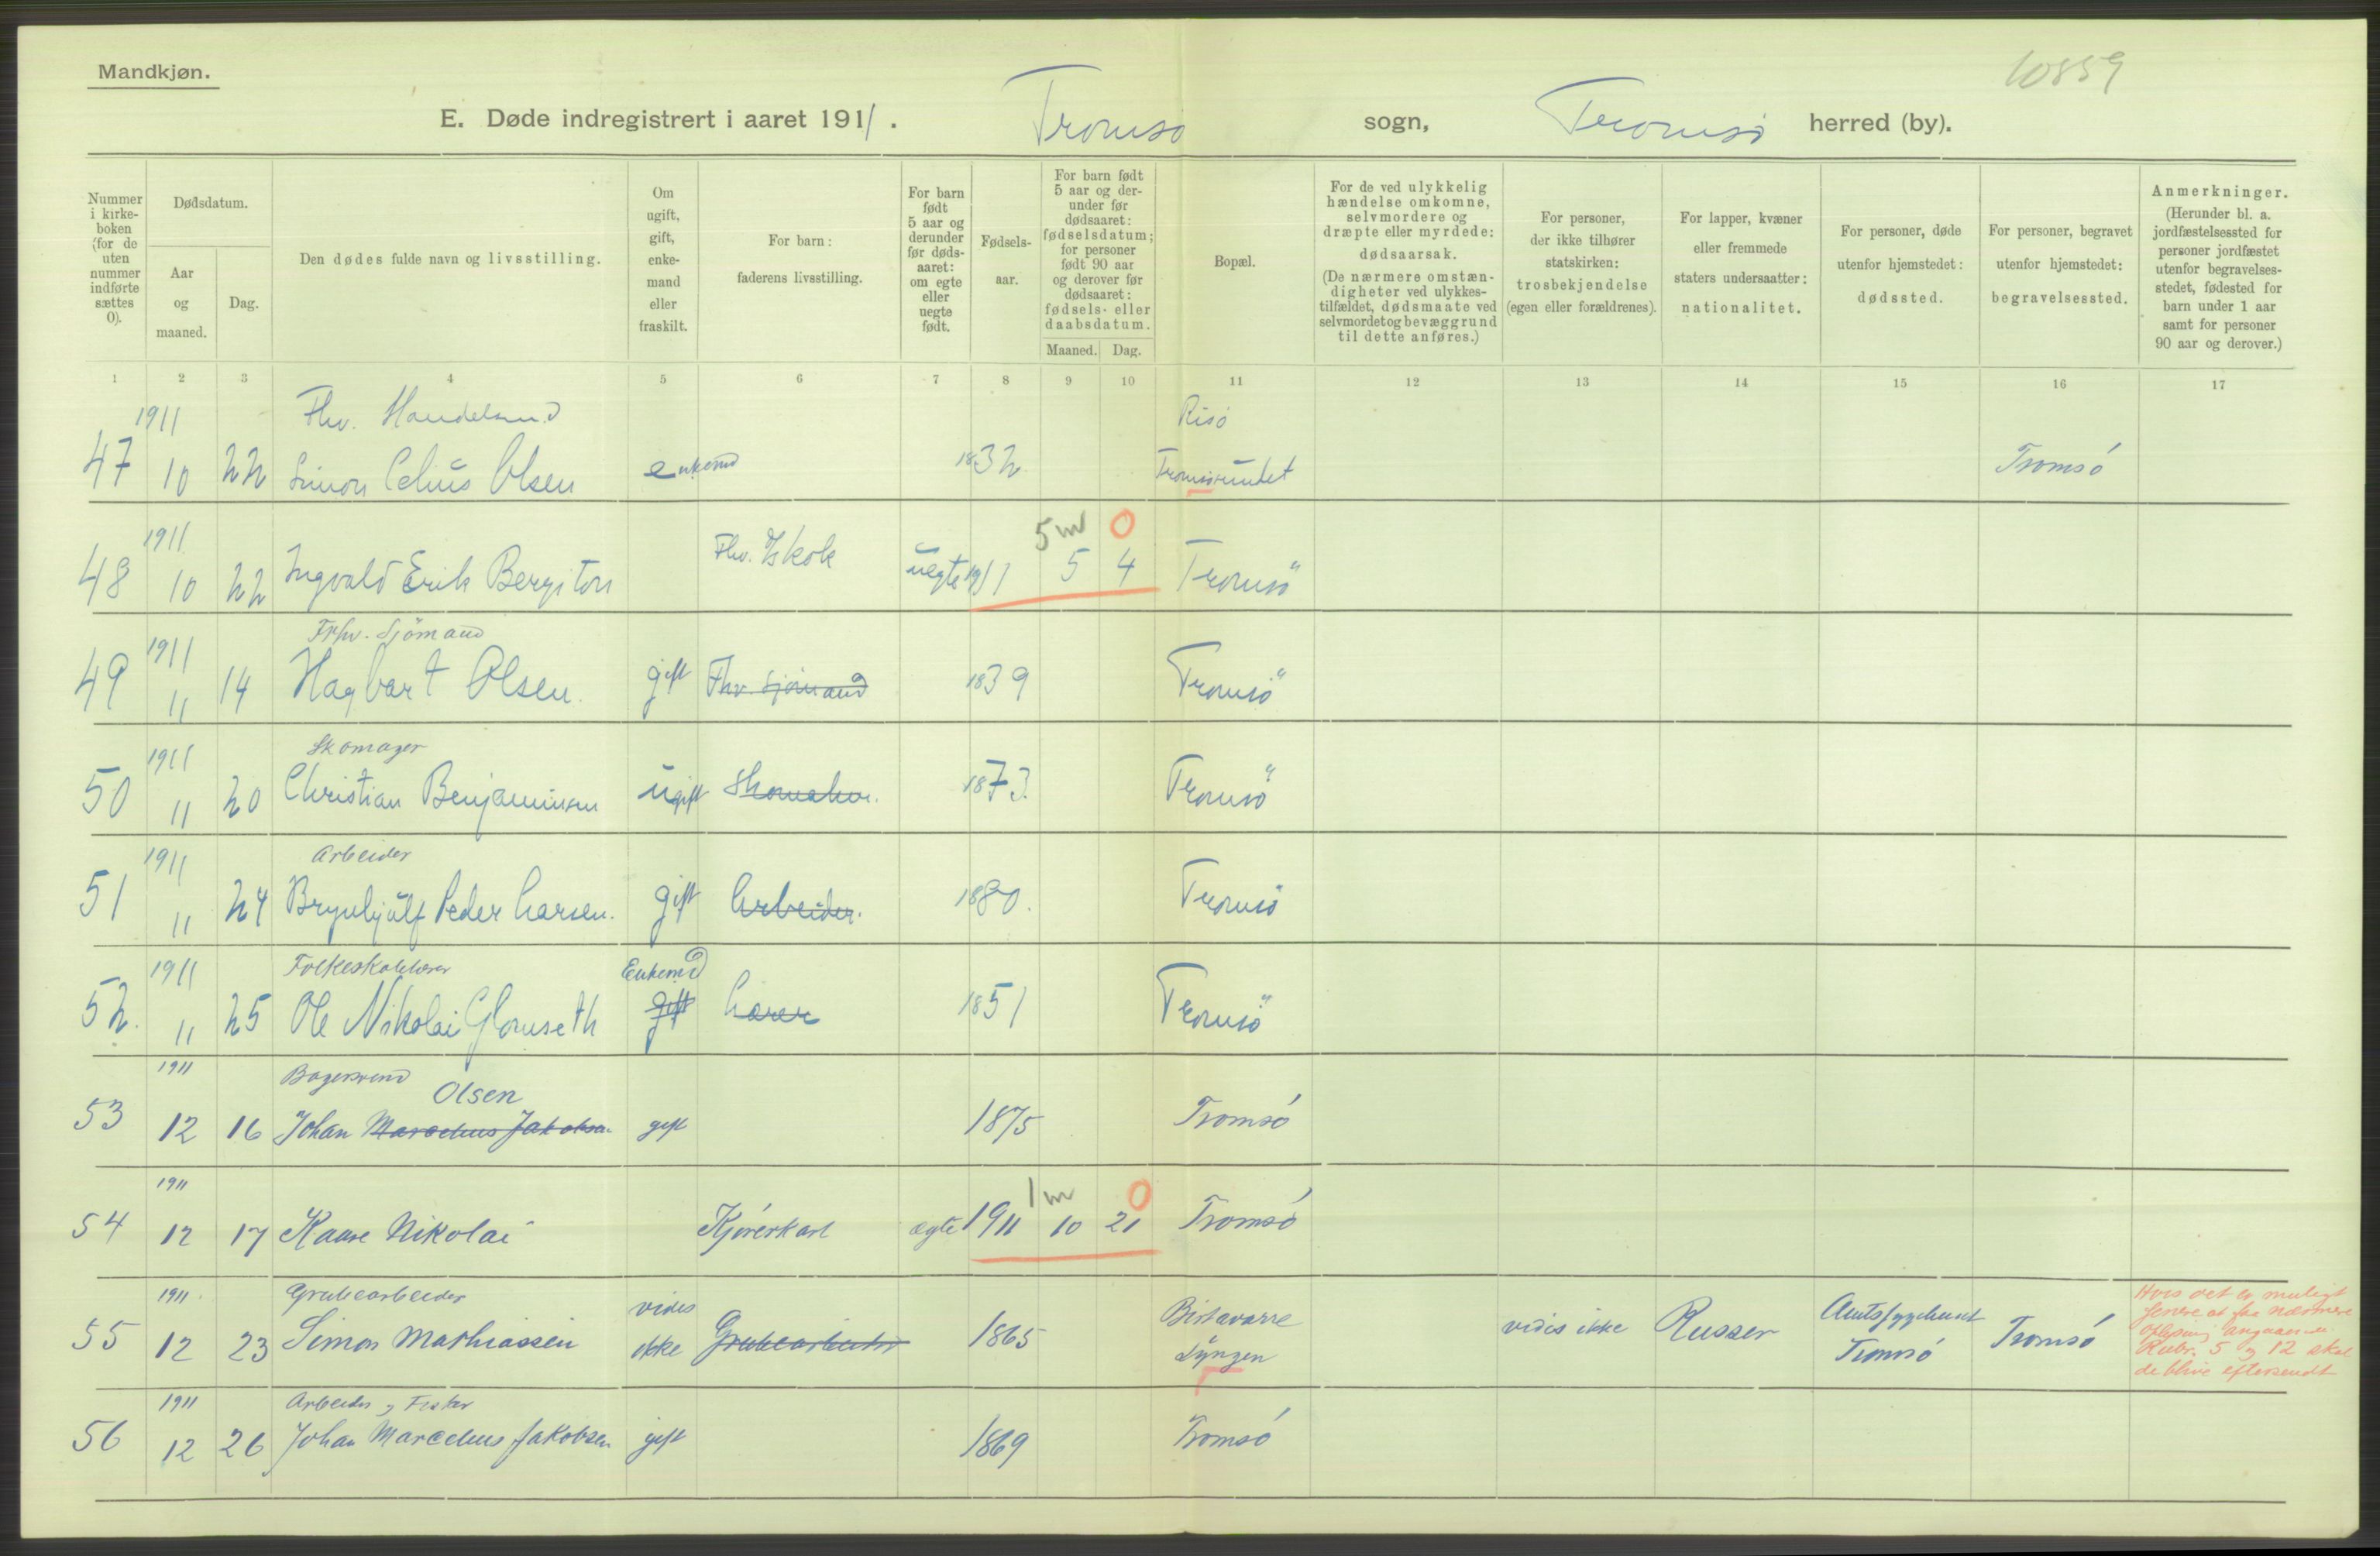 Mandkjøn.
10859
E. Døde indregistrert i aaret 1911. Tromsø sogn, Tromsø herred (by).
Nummer i kirke-boken (for de uten nummer indførte sættes 0).
Dødsdatum.
Aar og maaned.
Dag.
Den dødes fulde navn og livsstilling.
Om ugift, gift, enke-mand eller fraskilt.
For barn: faderens livsstilling.
For barn født 5 aar og derunder før døds-aaret: om egte eller uegte født.
Fødsels-aar.
For barn født 5 aar og der-under før dødsaaret: fødselsdatum; for personer født 90 aar og derover før dødsaaret: fødsels- eller daabsdatum.
Maaned. Dag.
Bopæl.
For de ved ulykkelig hændelse omkomne, selvmordere og dræpte eller myrdede: dødsaarsak. (De nærmere omstæn-digheter ved ulykkes-tilfældet, dødsmaate ved selvmordet og bevæggrund til dette anføres.)
For personer, der ikke tilhører statskirken: trosbekjendelse (egen eller forældrenes).
For lapper, kvæner eller fremmede staters undersaatter: nationalitet.
For personer, døde utenfor hjemstedet: dødssted.
For personer, begravet utenfor hjemstedet: begravelsessted.
Anmerkninger. (Herunder bl. a. jordfæstelsessted for personer jordfæstet utenfor begravelses-stedet, fødested for barn under 1 aar samt for personer 90 aar og derover.)
1 2 3 4 5 6 7 8 9 10 11 12 13 14 15 16 17
1911 Fhv. Handelsmd Risö
47 10 22 Simon Celius Olsen enkemd 1832 Tromsøsundet Tromsó
1911 5 m 0
48 10 22 Ingvald Erik Bergiton Fhv. Kok uegte 1911 5 4 Tromsö
1911 Fhv. Sjömand
49 11 14 Hagbart Olsen. gift Fhv. Sjömand 1839 Tromsö
1911 Skomager
50 11 20 Christian Benjaminsen ugift Skomaker. 1873. Tromsö
1911 Arbeider
51 11 24 Brynhjulf Peder Larsen. gift Arbeider. 1880. Tromsö
1911 Folkeskolelærer Enkemd
52. 11 25 Ole Nikolai Glomseth gift Lærer 1851 Tromsö
1911 Bagersvend Olsen
53 12 16 Johan Marcelius Jakobsen gift 1875 Tromsó
1911 1 m 0
54 12 17 Kaare Nikolai Kjórerkarl ægte 1911 10 21 Tromsó
1911 Grubearbeider vides Birtavarre Amtssygehuset
55 12 23 Simon Mathiassen ikke Grubearbeider 1865 Lyngen vides ikke Russer Tromsó Tromsó
Hvis det er muligt
senere at faa nærmere
Rubr. 5 og 12 skal
de blive eftersendt
1911 Arbeider og Fisker
56 12 26 Johan Marcelius Jakobsen gift 1869 Tromsó